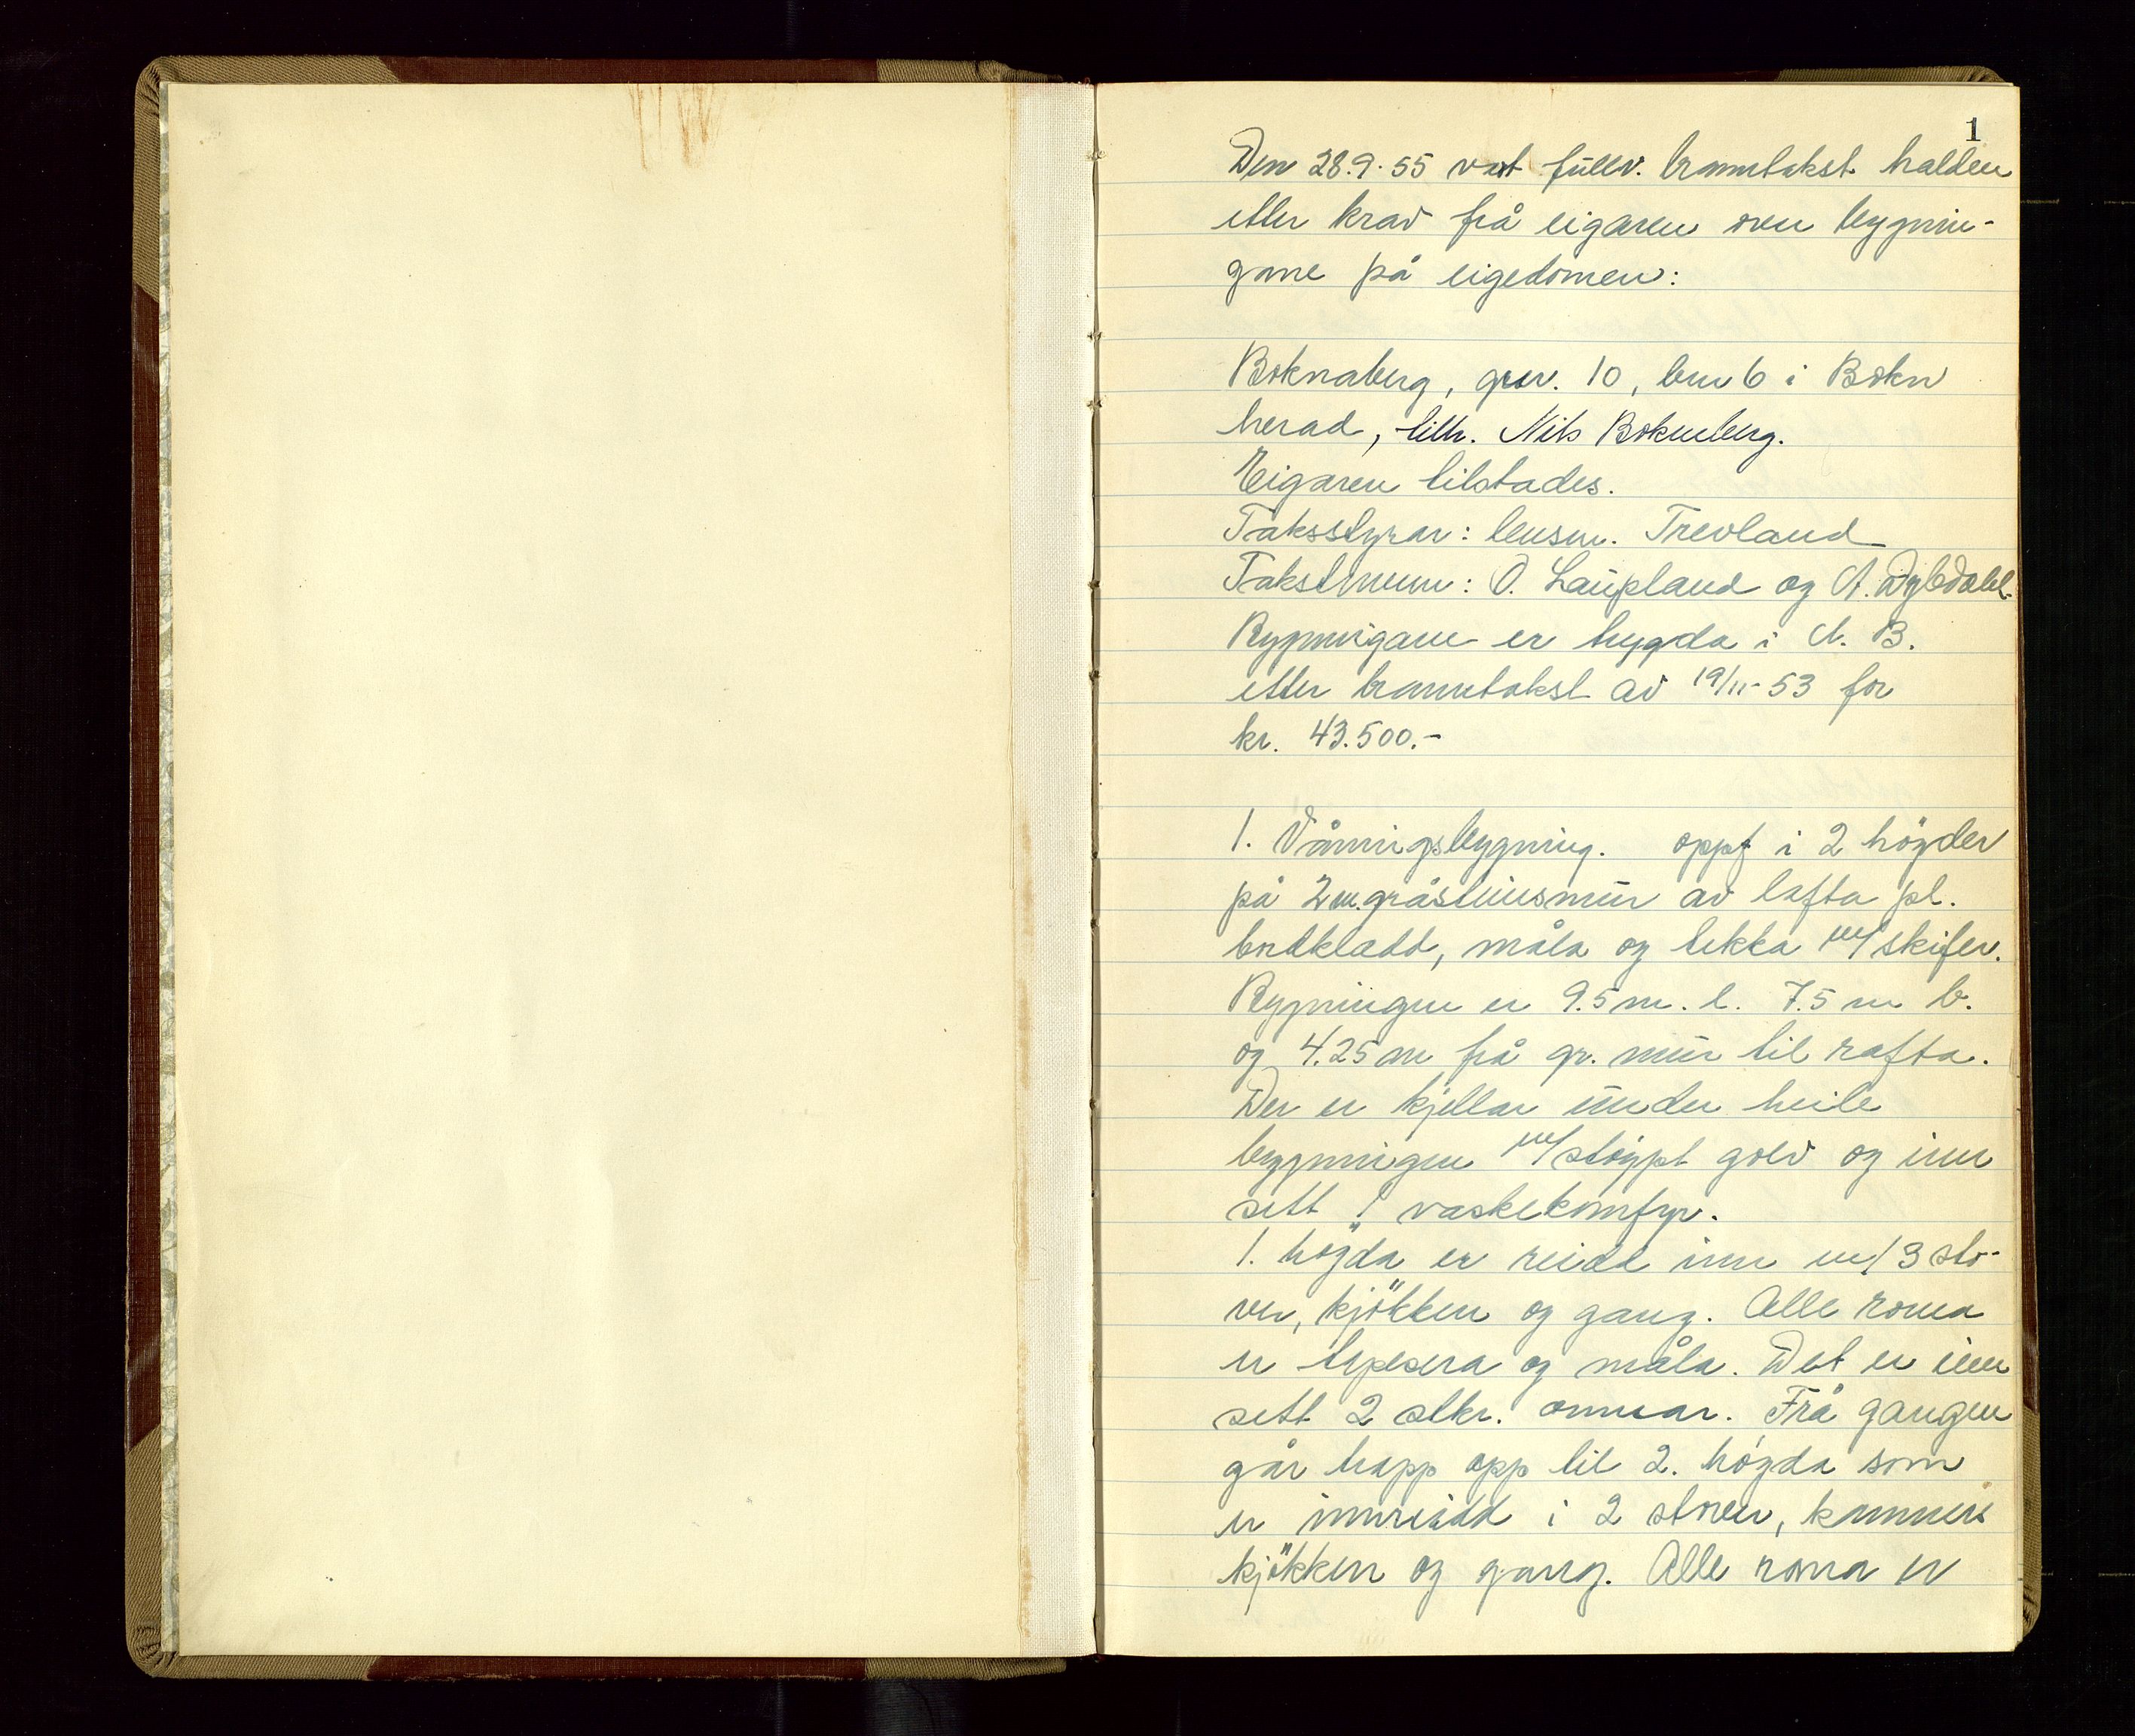 1
Den 28.9.55 vart fullv. branntakst halden
etter krav frå eigaren over bygnin-
gane på eigedomen:
Boknaberg, gnr. 10, bnr 6 i Bokn
herad, tilh. Nils Bokneberg.
Eigaren tilstades.
Taksstyrar: lensm. Trevland
Takstmenn: O. Laupland og A. Dybdahl.
Bygningane er trygda i N. B.
etter branntakst av 19/11-53 for
kr. 43.500.-
1. Våningsbygning. oppf i 2 högder
på 2 m. gråsteinsmur av lafta pl.
bordkledd, måla og tekka m/skifer.
Bygningen er 9.5 m. l. 7.5 m b.
og 4.25 m frå gr. mur til rafta.
Der er kjellar under heile
bygningen m/stöypt golv og inn
sett 1 vaskekomfyr.
1. högda er reidd inn m/3 sto-
ver, kjökken og gang. Alle roma
er tapesera og måla. Det er inn
sett 2 stkr. omnar. Frå gangen
går trapp opp til 2. högda som
er innreidd i 2 stover, kammers
kjökken og gang. Alle roma er